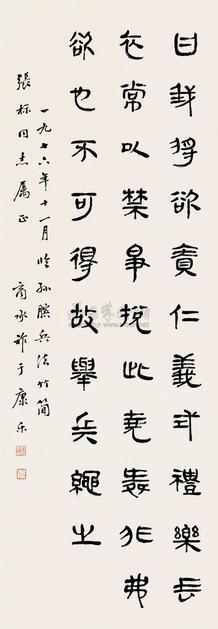 曰我将欲責仁義式禮樂垂
衣常以禁爭挩此堯舜非弗
欲也不可得故舉兵繩之
一九七六年十一月临孙膑兵法竹简
張标同志属正 商承祚于康乐